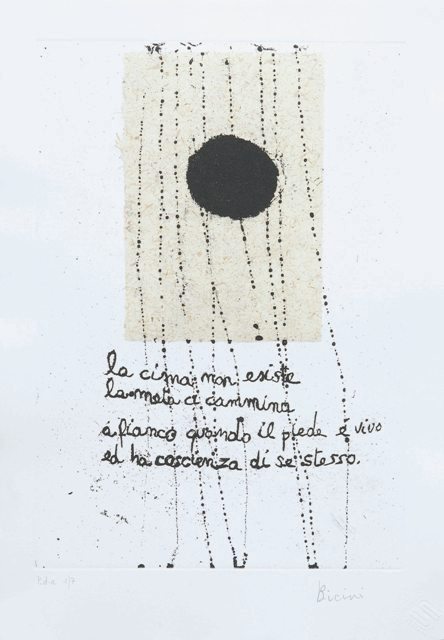 la cima non esiste
la meta ci cammina
a fianco quando il piede è vivo
ed ha coscienza di se stesso.
Bicini